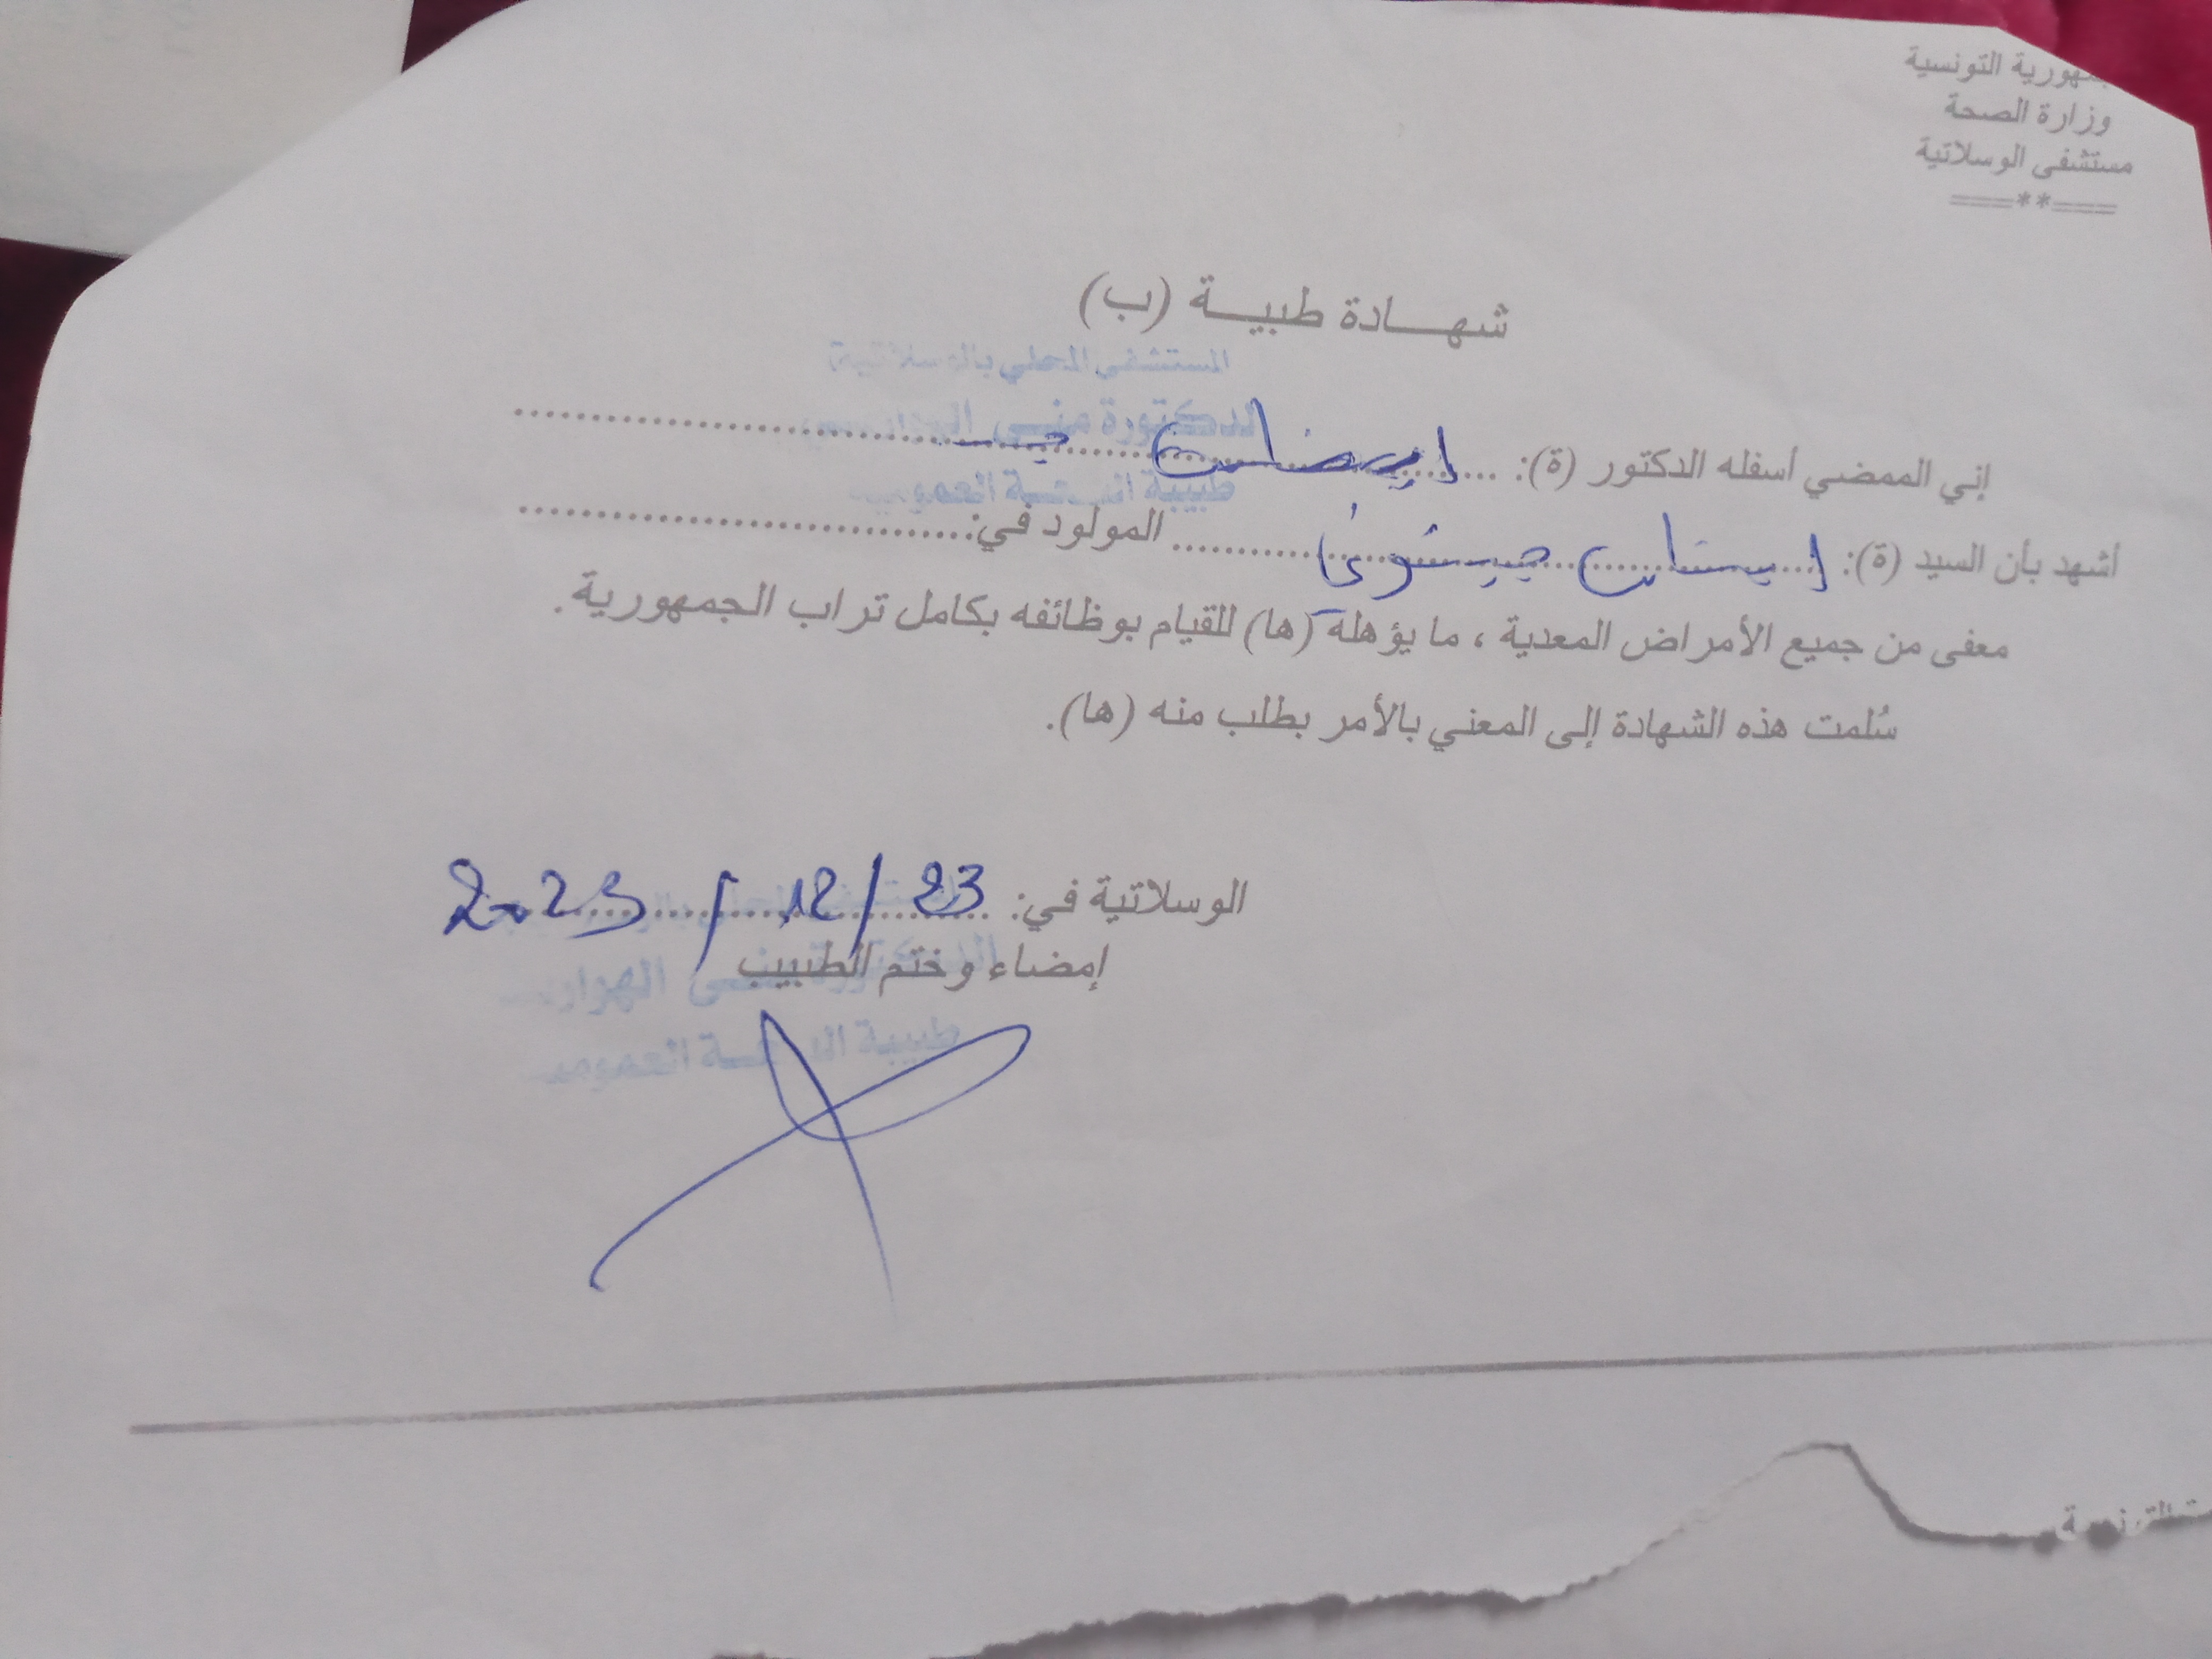 جمهورية التونسية
وزارة الصحة
مستشفى الوسلاتية
===**===
شهـــادة طبيـــة (ب)
المستشفى المحلي بالوسلاتية
الدكتورة منــى
طبيبة الصحــة العموميـ
إني الممضي أسفله الدكتور (ة):
أشهد بأن السيد (ة): المولود في:
معفى من جميع الأمراض المعدية ، ما يؤهله (ها) للقيام بوظائفه بكامل تراب الجمهورية .
سُلمت هذه الشهادة إلى المعني بالأمر بطلب منه (ها).
الوسلاتية في: 23/12/2023
إمضاء وختم الطبيب
الدكتورة منــى الهوار
طبيبة الصحــة العموميـ